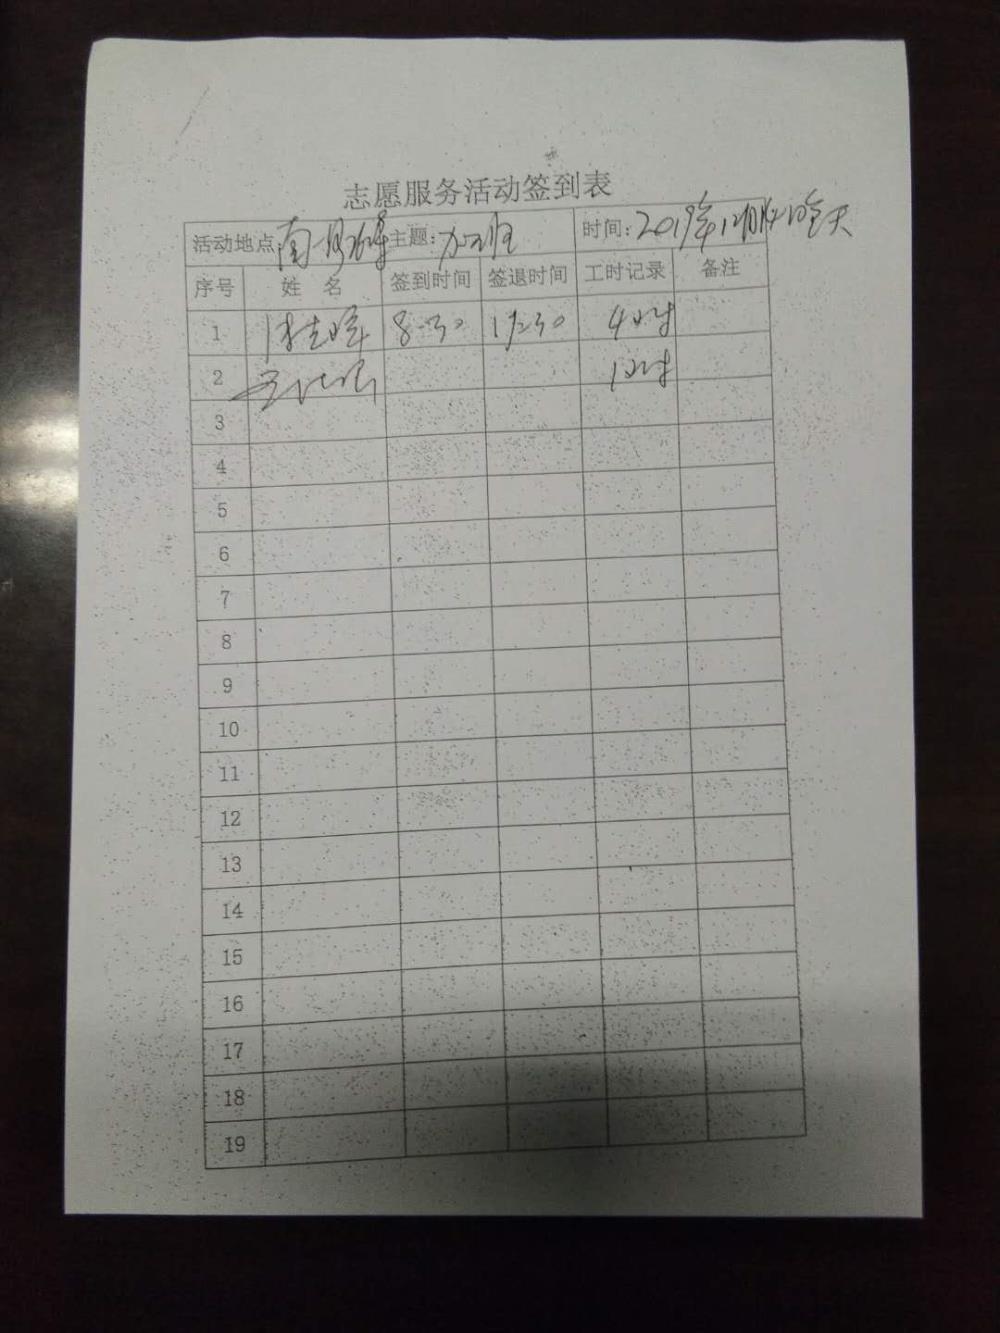 志愿服务活动签到表
活动地点 南 主题: 加班 时间: 2019年12月 全天
序号 姓 名 签到时间 签退时间 工时记录 备注
1 8:30 17:30 4小时
2 1小时
3
4
5
6
7
8
9
10
11
12
13
14
15
16
17
18
19